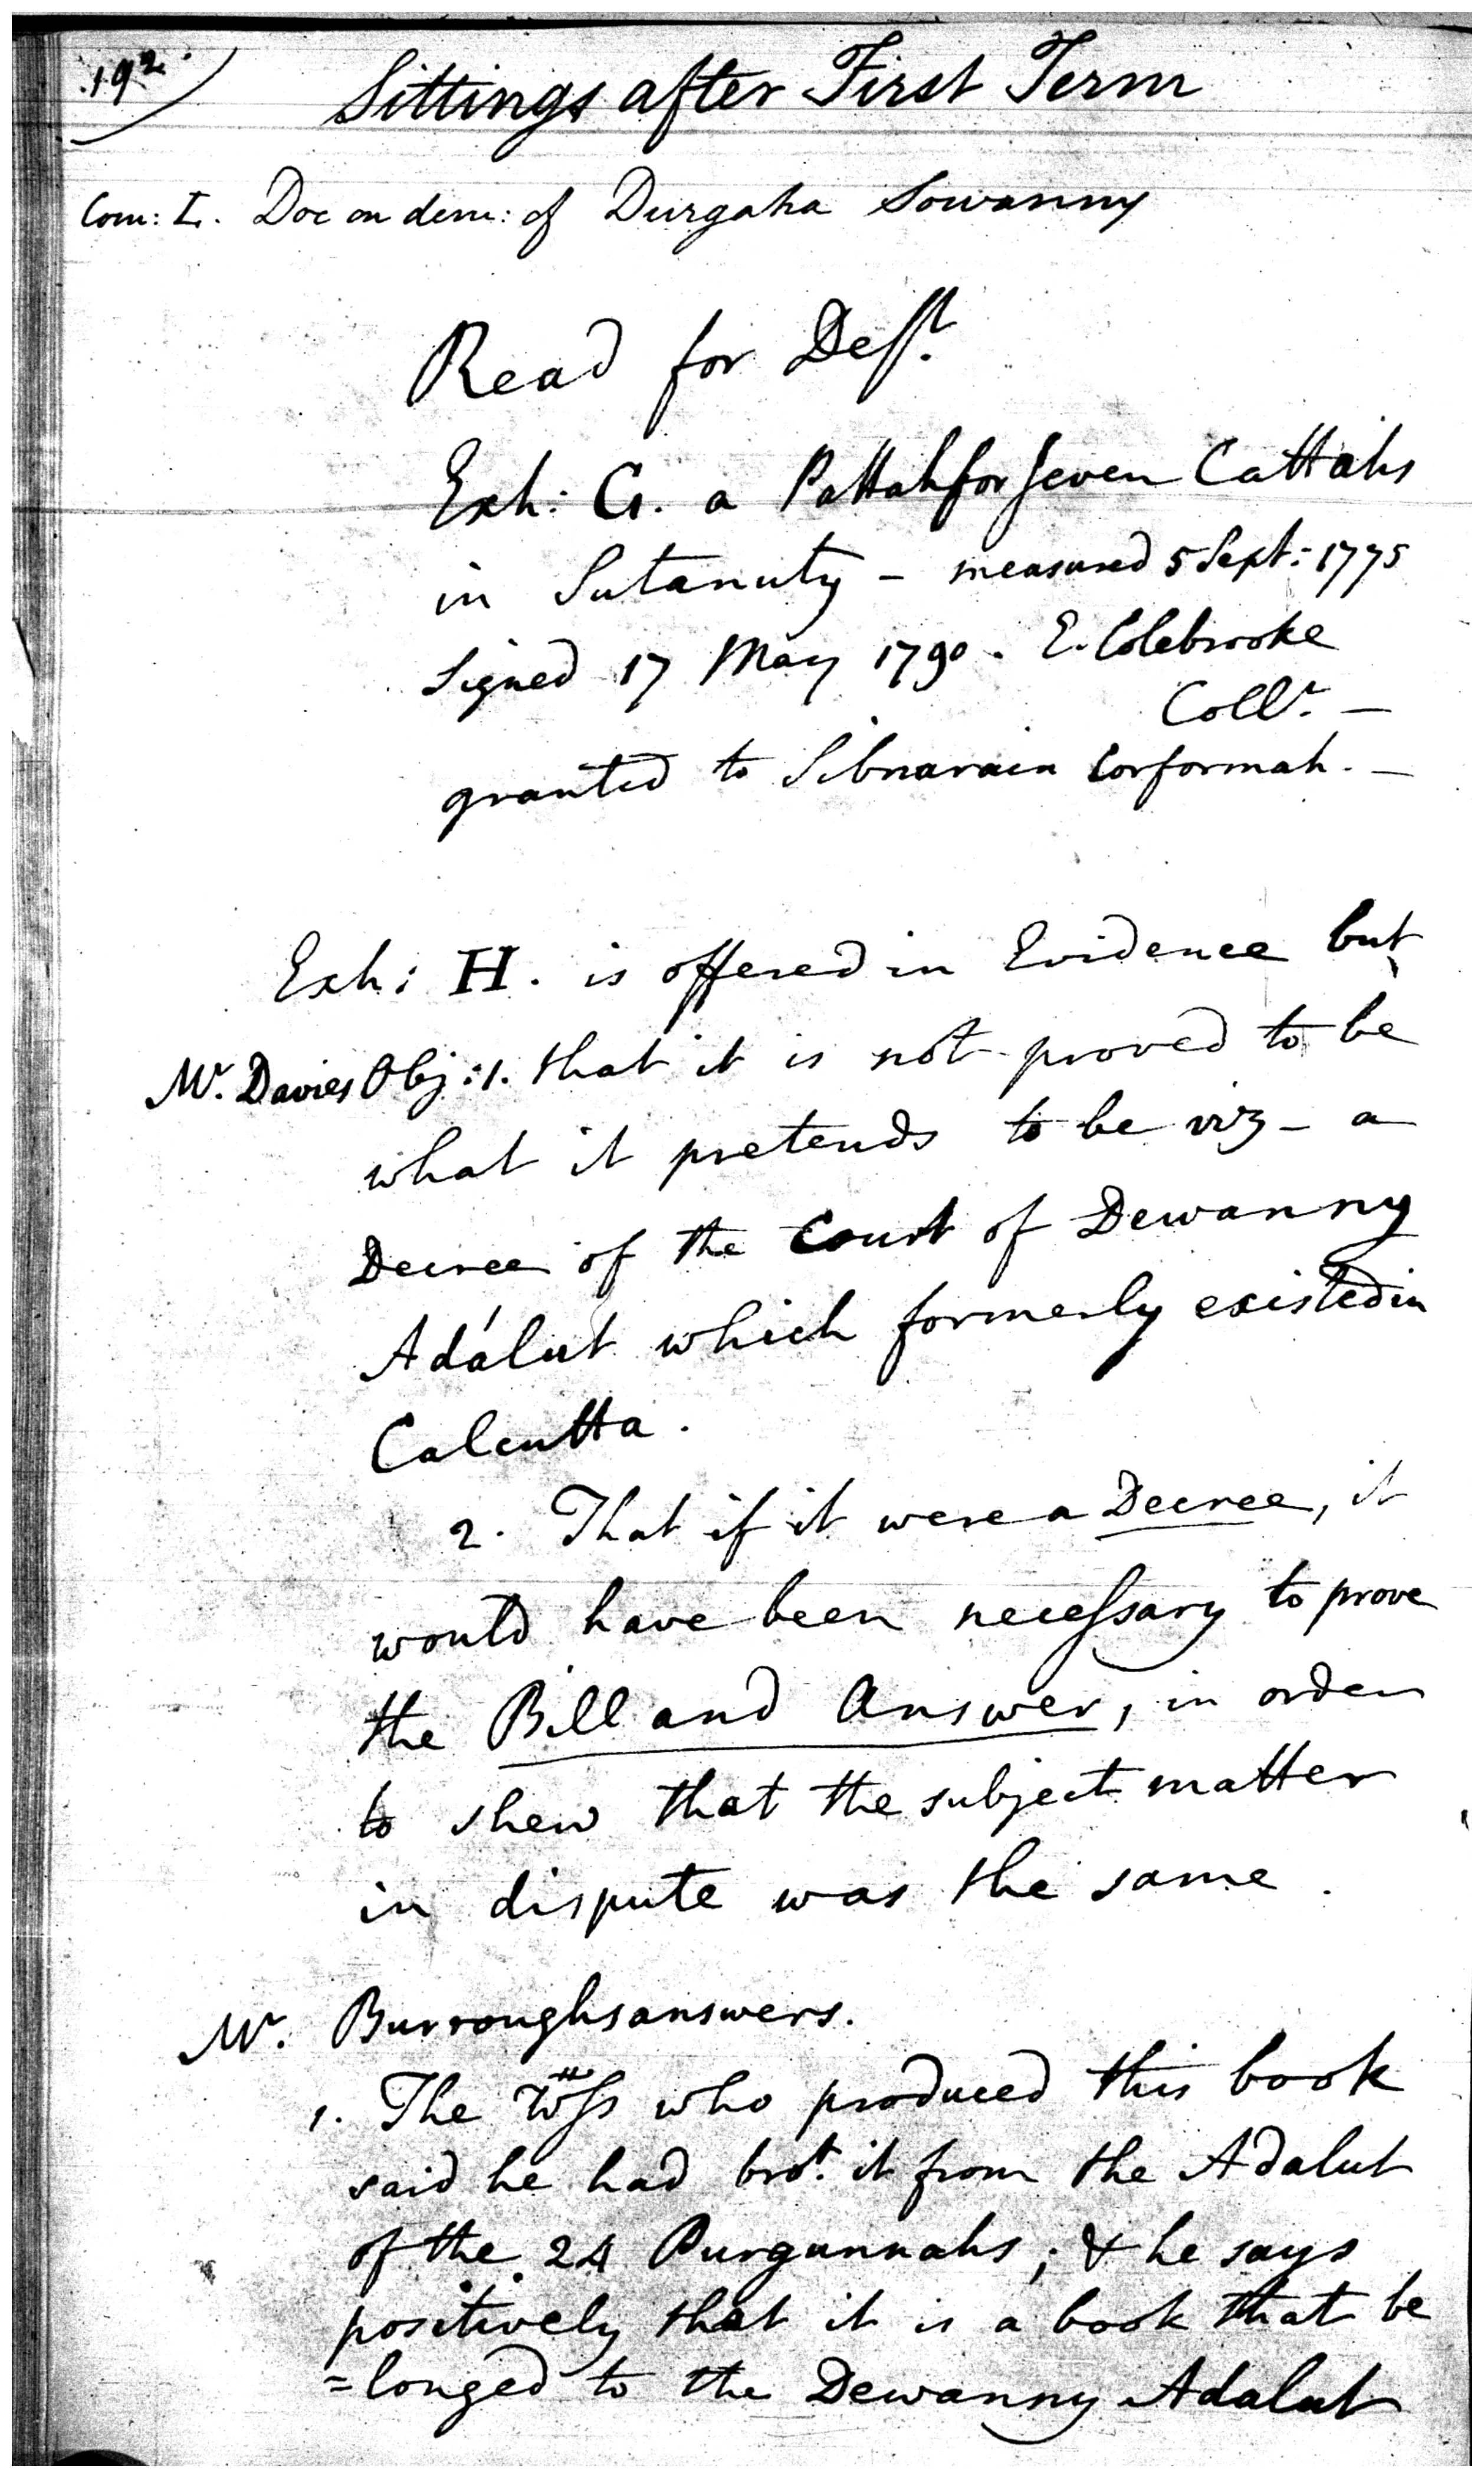 192.
Sittings after First Term
Com: I. Doe on dem: of Durgaha Sowanny
Read for Deft.
Exh: G. a Pattah for seven Cattahs
in Sutanuty - measured 5 Sept: 1775
signed 17 May 1790. E. Colebrooke
Collr. -
granted to Sibnarain Corformah. -
Exh: H. is offered in Evidence but
Mr. Davies Obj: 1. that it is not proved to be
what it pretends to be viz - a
Decree of the Court of Dewanny
Adálut which formerly existed in
Calcutta.
2. That if it were a Decree, it
would have been necessary to prove
the Bill and Answer, in order
to shew that the subject matter
in dispute was the same.
Mr. Burroughs answers.
1. The Wss who produced this book
said he had brot. it from the Adalut
of the 24 Purgunnahs; & he says
positively that it is a book that be
=longed to the Dewanny Adalut